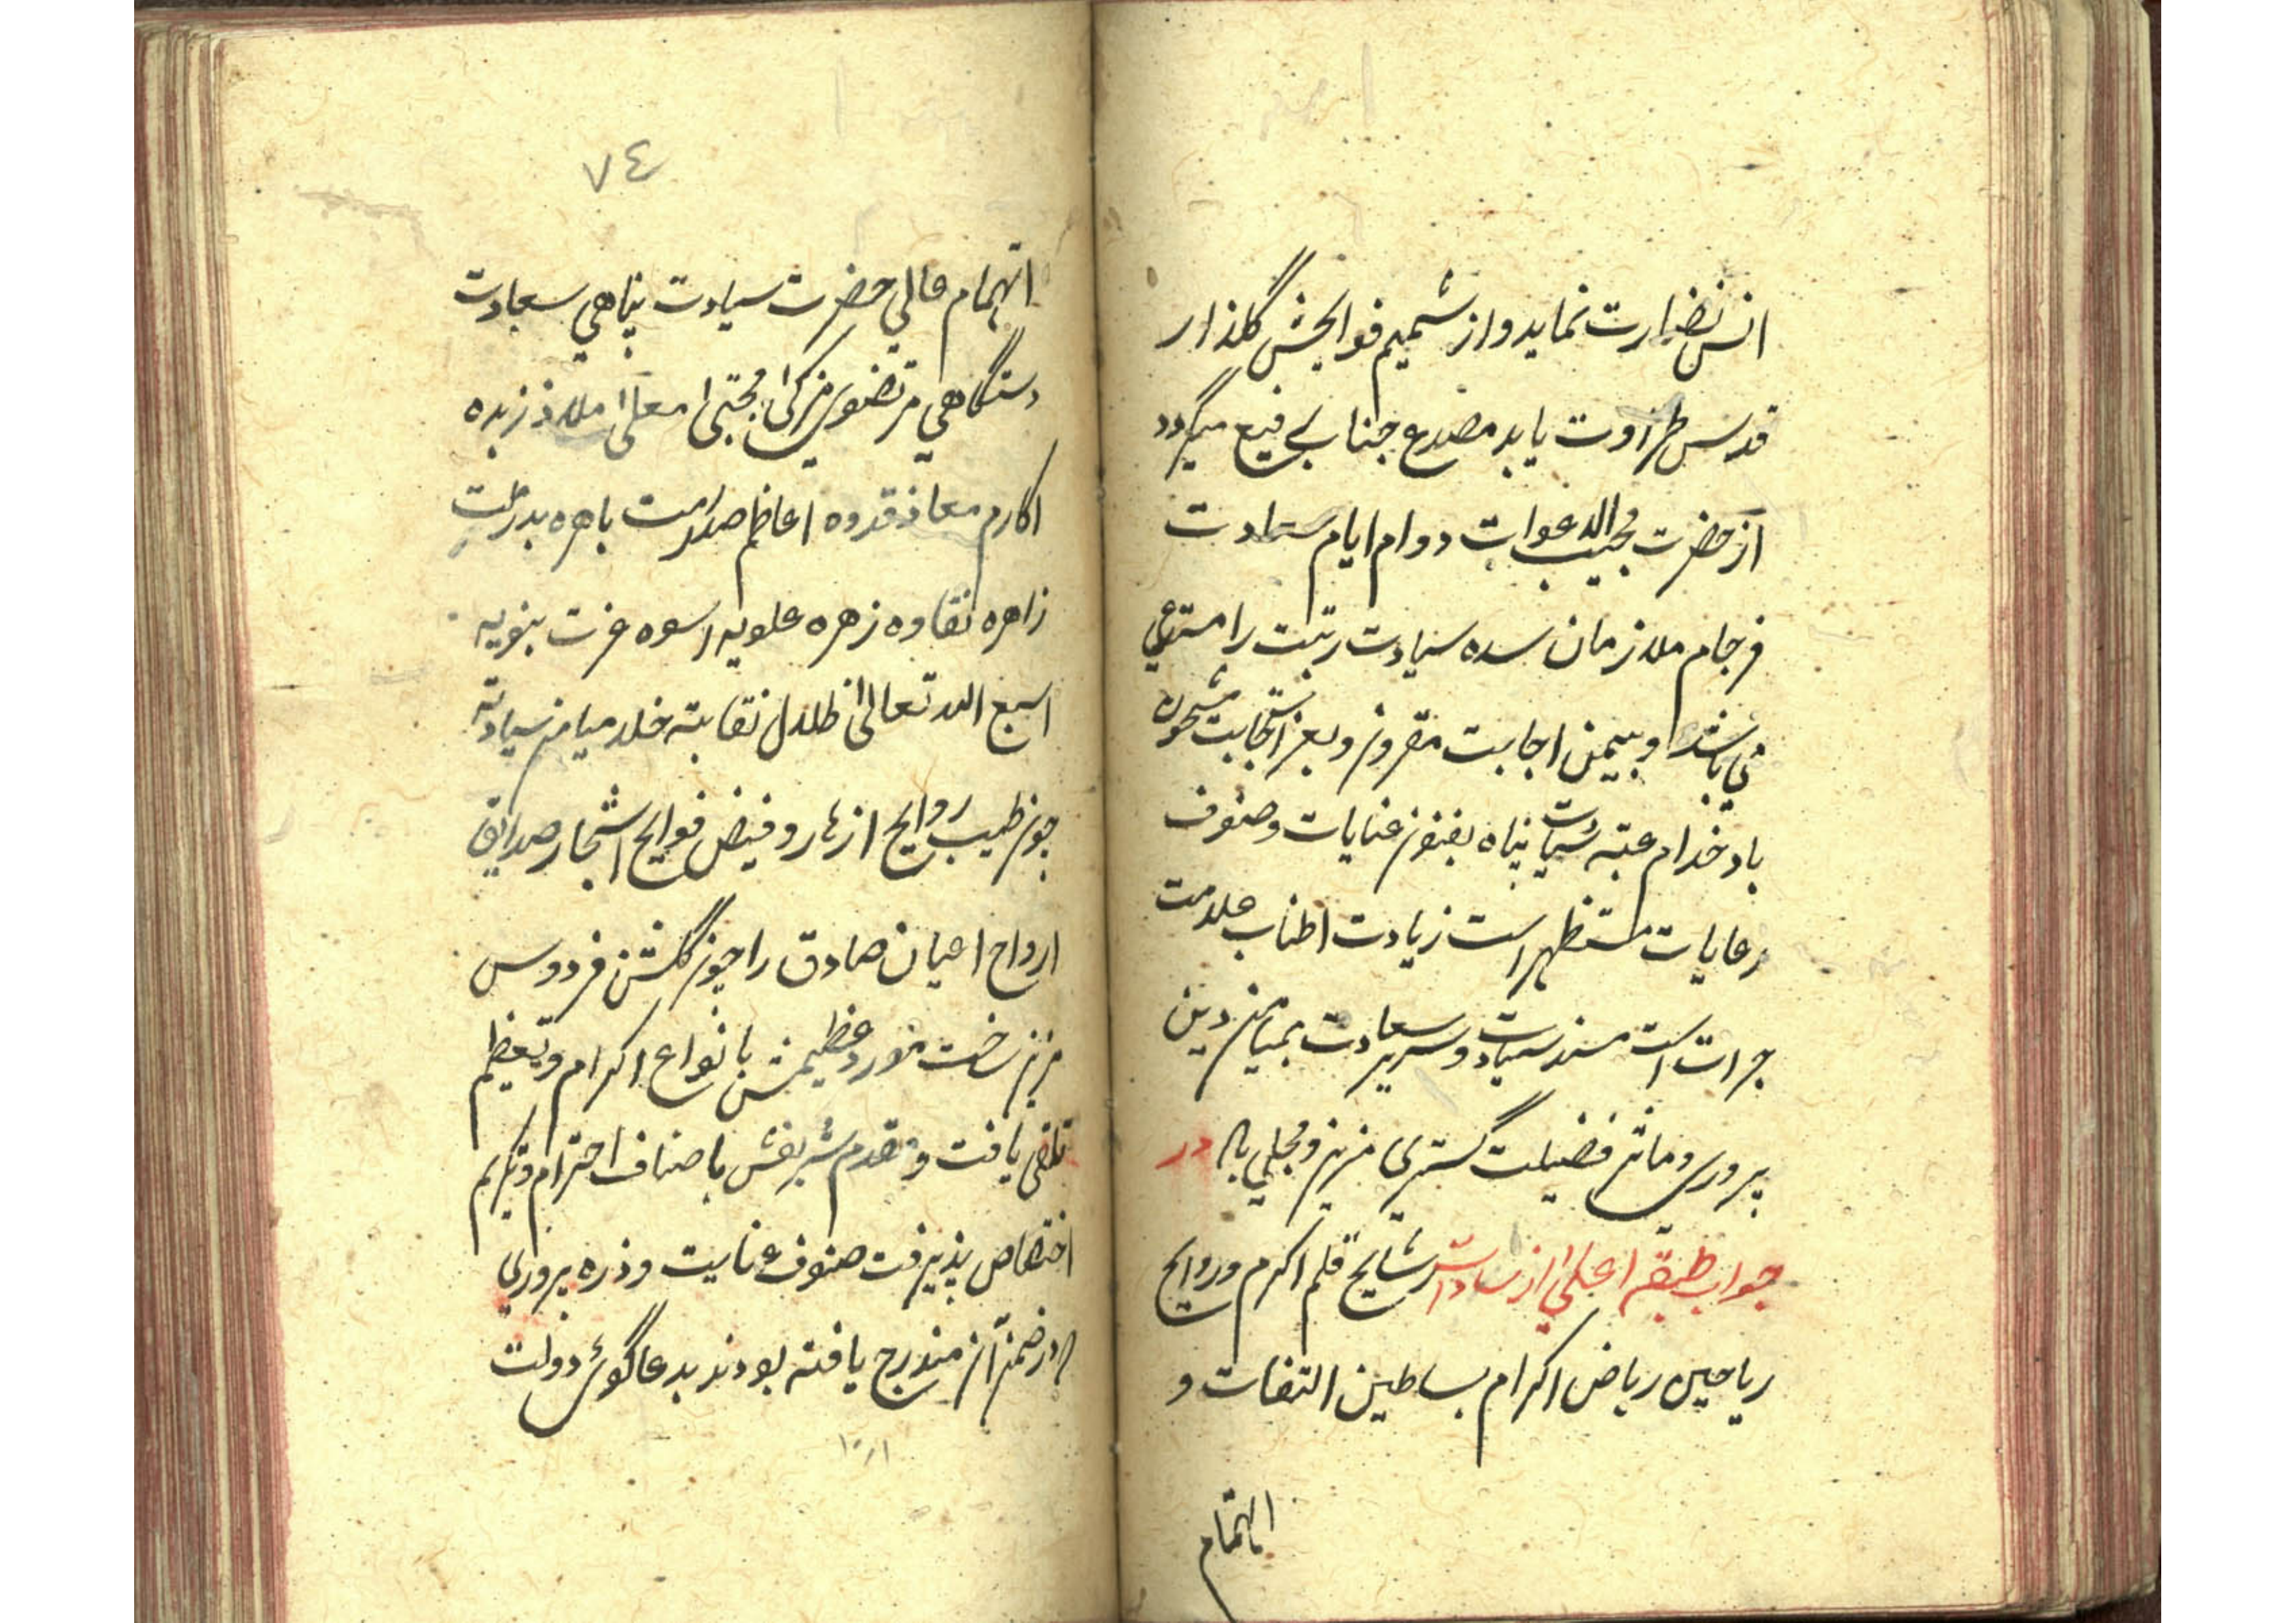 انس نضارت نماید و از شمیم فوایحش گلذار
قدس طراوت یابد مصدع جناب رفیع میگردد
از حضرت مجیب الدعوات دوام ایام سعادت
فرجام ملازمان سده سیادت رتبت را مستدعی
می باشد و بیمن اجابت مقرون و بعز استجابت مشحون
باد خدام عتبه سیادت پناه بفنون عنایات و صنوف
رعایات مستظهر است زیادت اطناب علامت
جرات است مسند سیادت و سریر سعادت بمیامن دین
پروری و مآثر فضیلت گستری مزین و محلی باد در
جواب طبقه اعلی از سادات رشایح قلم اکرم و روایح
ریاحین ریاض اکرام بساطین التفات و
اهتمام
٧٤
اهتمام عالی حضرت سیادت پناهی سعادت
دستگاهی مرتضوی مزکی مجتبی معلی ملاذ زبده
اکارم معاذ قدوه اعاظم صدارمت باهره بدرطلت
زاهره نقاوه زهره علویه اسوه عزت نبویه
اسبغ الله تعالی ظلال نقابته خلد میامن سیادته
چون طیب روایح ازهار و فیض فوایح اشجار حدایق
ارواح اعیان صادق را چون گلشن فردوس
مزین ساخت مورد عظیمش بانواع اکرام و تعظیم
تلقی یافت و مقدم شریفش باصناف احترام و تکریم
اختصاص پذیرفت صنوف عنایت و ذره پروری
که در ضمن آن مندرج یافته بودند بدعاگوی دولت